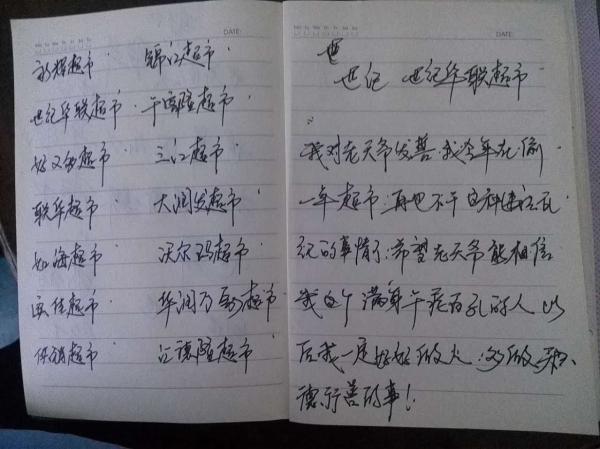 DATE:
永辉超市 锦江超市
世纪华联超市 千家隆超市
好又多超市 三江超市
联华超市 大润发超市
如海超市 沃尔玛超市
佳超市 华润万家超市
供销超市 江德隆超市
DATE:
世
世纪 世纪华联超市
我对老天爷发誓我今年在偷
一年超市:再也不干这种违法乱
纪的事情了:希望老天爷能相信
我这个满身千疮百孔的人 以
后我一定好好做人:多做积
德行善的事!